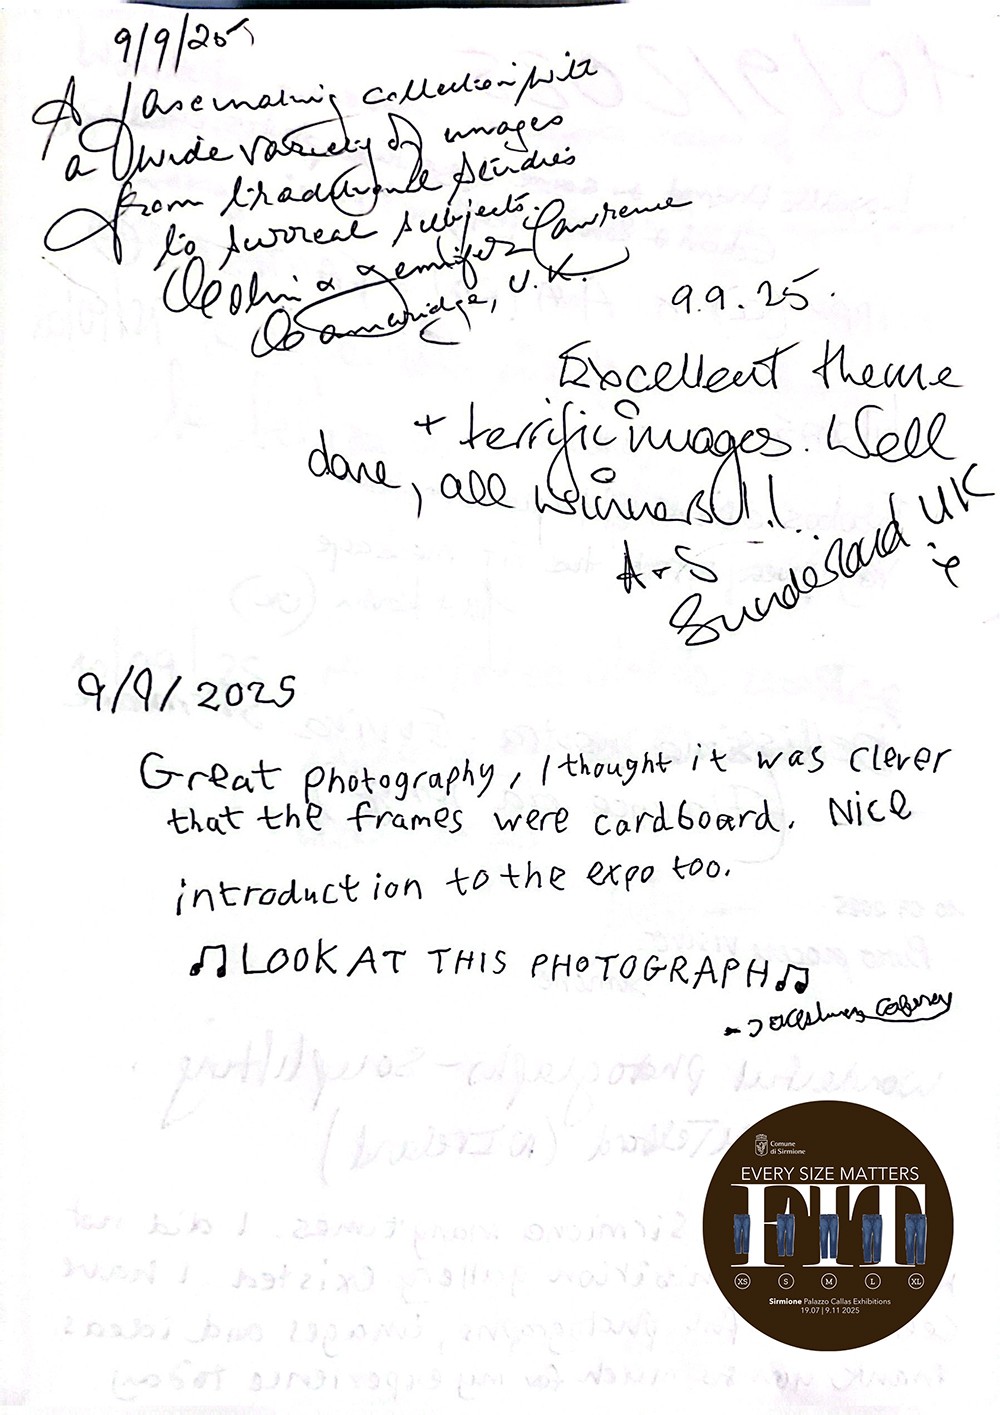 9/9/25
A fascinating collection with
a wide variety of images
from traditional studies
to surreal subjects.
Colin & Jennifer Lawrence
Cambridge, U.K.
9.9.25.
Excellent theme
+ terrific images. Well
done, all winners!!!
A & S
Sunderland UK
9/9/2025
Great photography, I thought it was clever
that the frames were cardboard. Nice
introduction to the expo too.
♫ LOOK AT THIS PHOTOGRAPH ♫
Comune
di Sirmione
EVERY SIZE MATTERS
FIT
XS S M L XL
Sirmione Palazzo Callas Exhibitions
19.07 | 9.11 2025